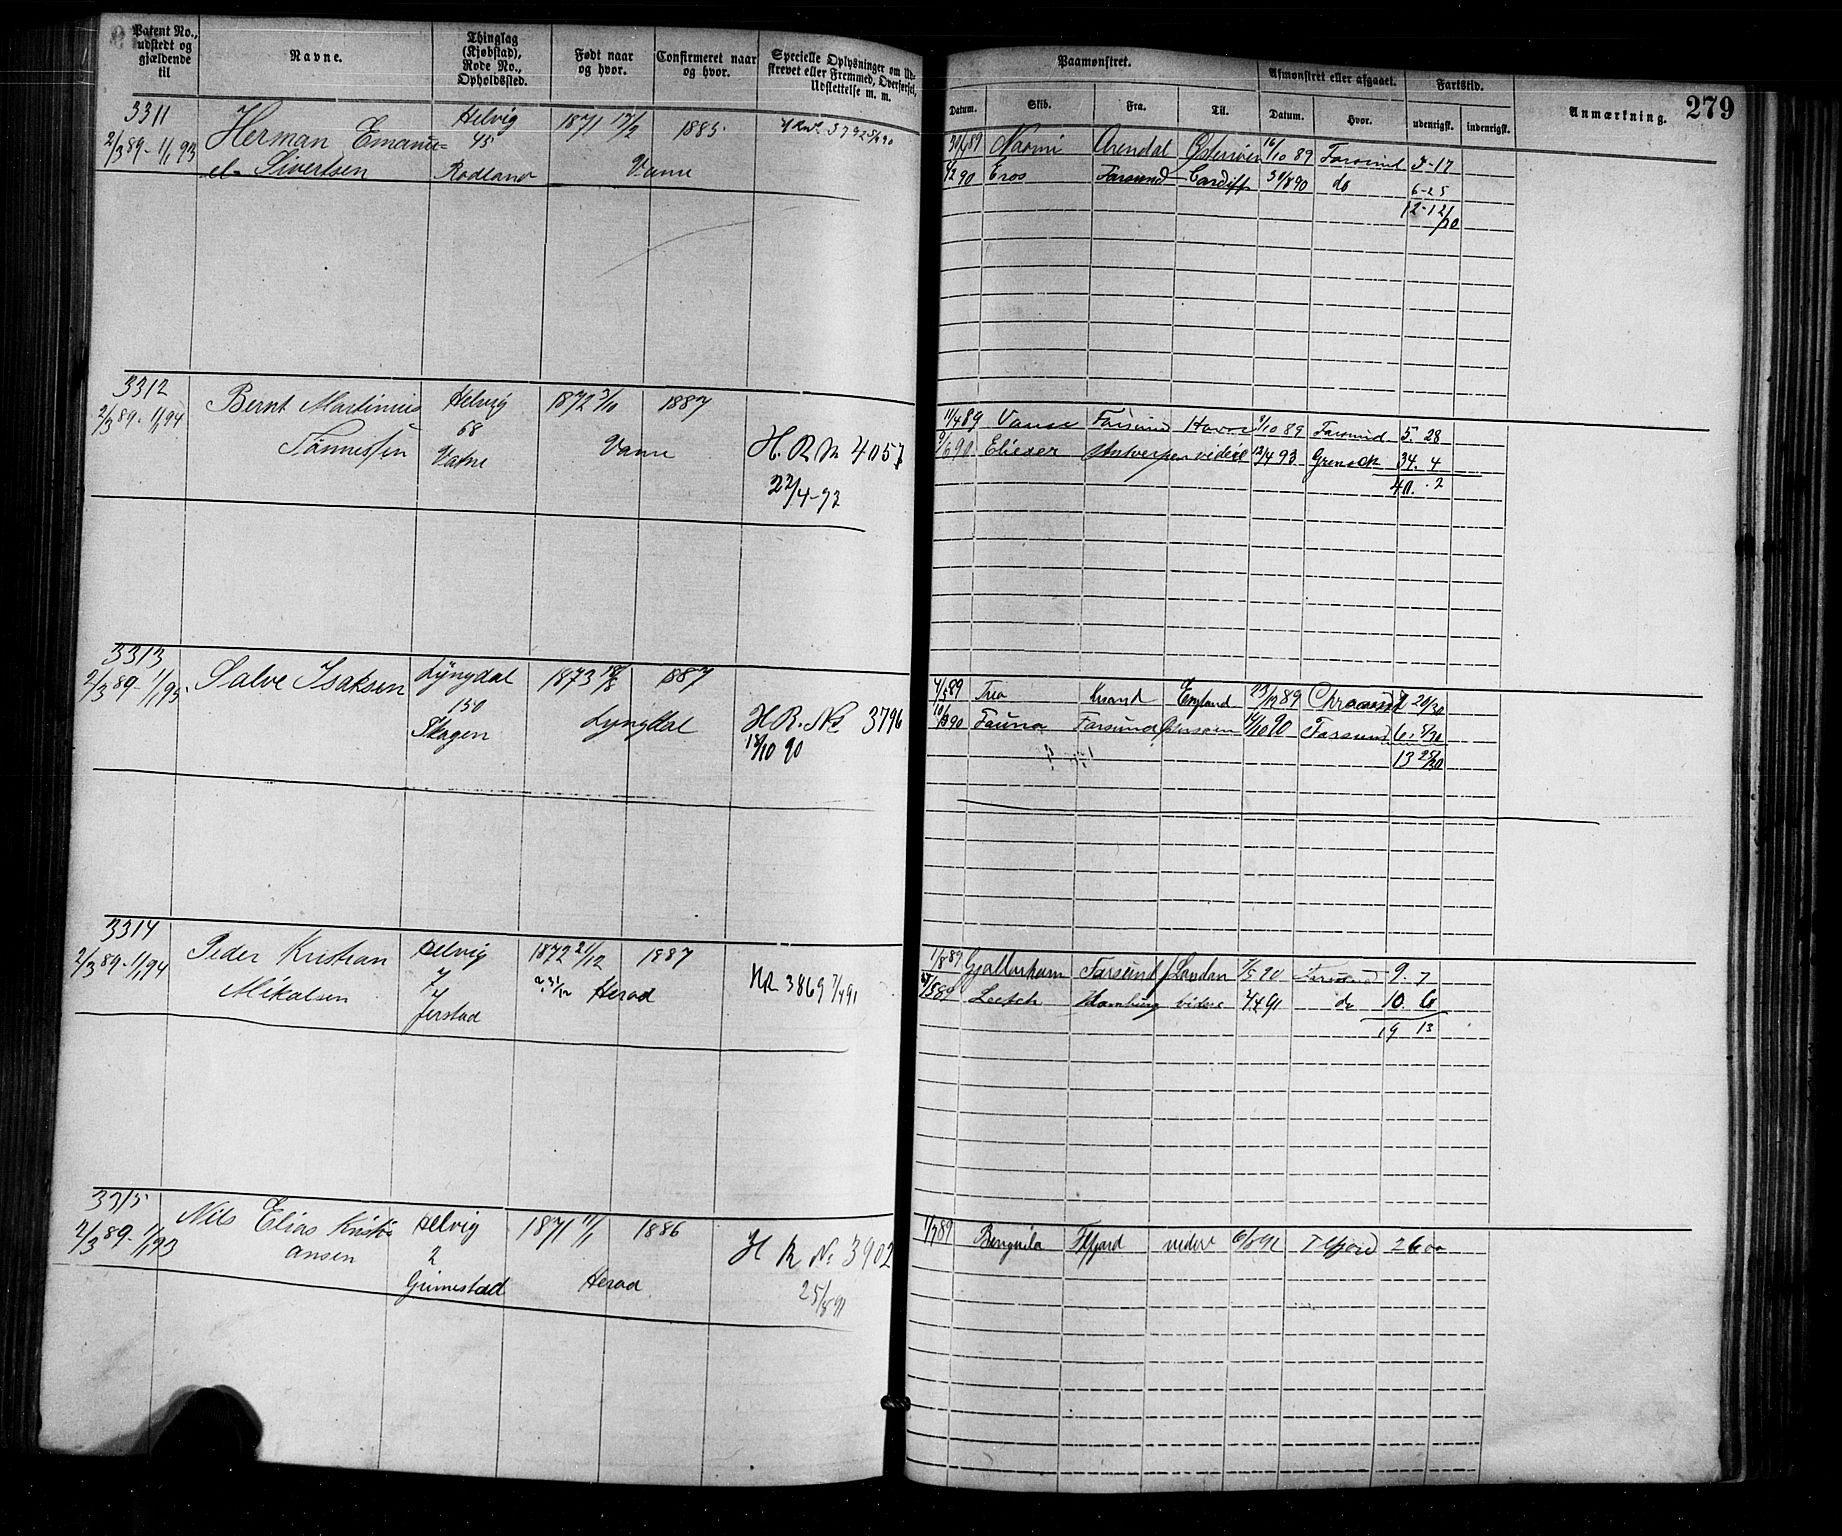 Patent No., udstedt og gjældende til
Navne.
Thinglag (Kjøbstad), Rode No., Opholdssted.
Født naar og hvor.
Confirmeret naar og hvor.
Specielle Oplysninger om Udskrevet eller Fremmed, Overførsel, Udslettelse m. m.
Paamønstret.
Datum.
Skib.
Fra.
Til.
Afmønstret eller afgaaet.
Datum.
Hvor.
Fartstid.
udenrigsk.
indenrigsk.
Anmærkning.
279
3311
2/3 89 - 1/1 93
Herman Emanu=
el Sivertsen
Helvig
45
Rødland
1871 17/9
1885
Vanse
30/4 89 Naomi Arendal 16/10 89 Farsund 5-17
90 Eros Farsund Cardiff 30/8 90 do 6-25
12-12/30
3312
2/3 89 - 1/1 94
Bernt Martinius
Tønnessen
Helvig
68
Vatne
1872 3/10
1887
Vanse
H. R. No 4057
22/4-93
11/4 89 Vanse Farsund Havre 9/10 89 Farsund 5. 28
9/6 90 Elieser Antwerpen videre 12/4 93 34. 4
40. 2
3313
2/3 89 - 1/1 95
Salve Isaksen
Lyngdal
150
Skagen
1873 18/8
1887
Lyngdal
H R. No 3796
18/10 90
4/5 89 Trio Krsand England 23/12 89
90 Fauna Farsund 14/10 90 Farsund 6. 5/30
13 25/30
3314
2/3 89 - 1/1 94
Peder Kristian
Mikalsen
Helvig
7
Jerstad
1872 21/12
1887
Herad
HR 3869 7/4 91
1/8 89 Gjallarhorn Farsund London 7/5 90 Farsund 9. 7
89 Hamburg videre 7/4 91 do 10. 6
19 13
3315
2/3 89 - 1/1 93
Nils Elias Kristi
ansen
Helvig
2
Grimestad
1871 11/1
1886
Herad
H R No 3902
25/8 91
1/7 89 Benguela Flfjord videre 6/8 91 Flfjord